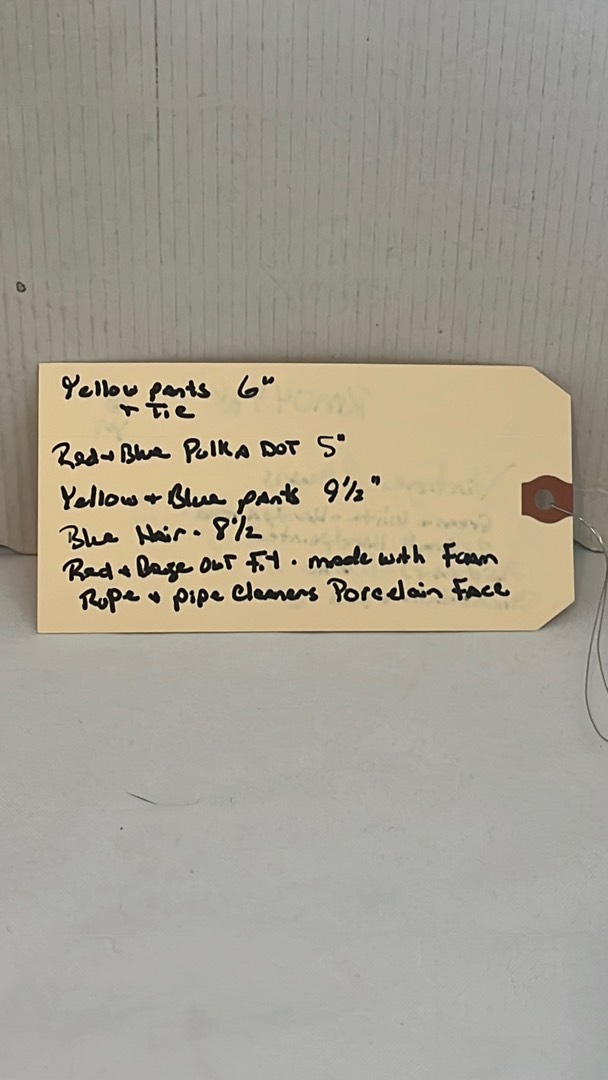 Yellow pants 6"
+ Tie
Red + Blue Polka DOT 5"
Yellow + Blue pants 9 1/2"
Blue Hair - 8 1/2
Red + Bage OUT Fit - made with Foam
Rope + pipe Cleaners Porcelain Face